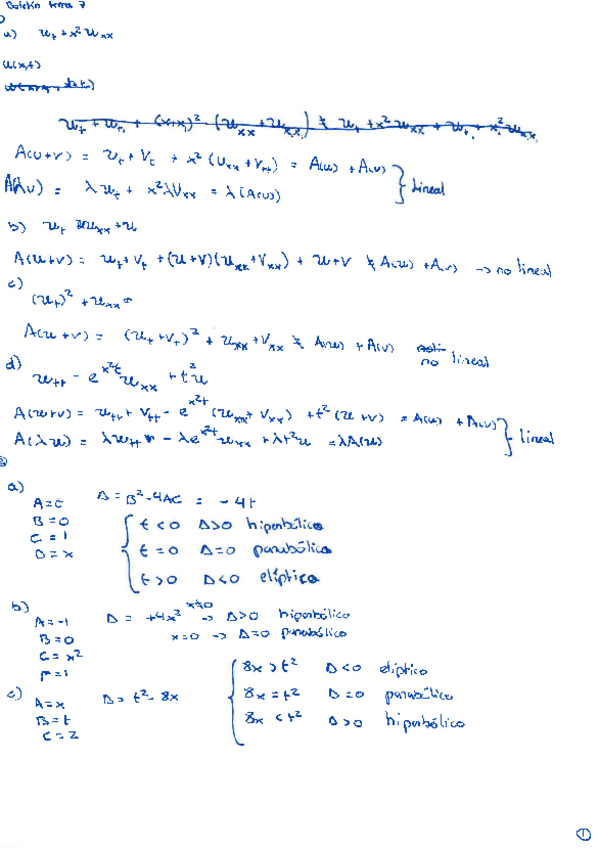 Boletín tema 7
a) u_t + x² u_xx
u(x,t)
u_t + u_t₁ + (x+x₁)² · (u_xx + u_xx) ≠ u_t + x² u_xx + u_t₁ + x₁² u_xx
A(u+v) = u_t + v_t + x² (u_xx + v_xx) = A(u) + A(v)
A(λu) = λ u_t + x² λ u_xx = λ(A(u)) } lineal
b) u_t u u_xx + u
A(u+v) = u_t + v_t + (u+v)(u_xx + v_xx) + u+v ≠ A(u) + A(v) → no lineal
c)
(u_t)² + u_xx
A(u+v) = (u_t + v_t)² + u_xx + v_xx ≠ A(u) + A(v) no lineal
d)
u_tt - e^(x²t) u_xx + t² u
A(u+v) = u_tt + v_tt - e^(x²t) (u_xx + v_xx) + t² (u+v) = A(u) + A(v)
A(λu) = λu_tt - λe^(x²t) u_xx + λt² u = λA(u) } lineal
②
a)
A = t Δ = B² - 4AC = -4t
B = 0 t < 0 Δ > 0 hiperbólico
C = 1 t = 0 Δ = 0 parabólico
D = x
t > 0 Δ < 0 elíptico
b)
A = -1 Δ = +4x² x≠0 → Δ > 0 hiperbólico
B = 0 x = 0 → Δ = 0 parabólico
C = x²
F = 1
8x > t² Δ < 0 elíptico
c) A = x Δ = t² - 8x 8x = t² Δ = 0 parabólico
B = t 8x < t² Δ > 0 hiperbólico
C = 2
①